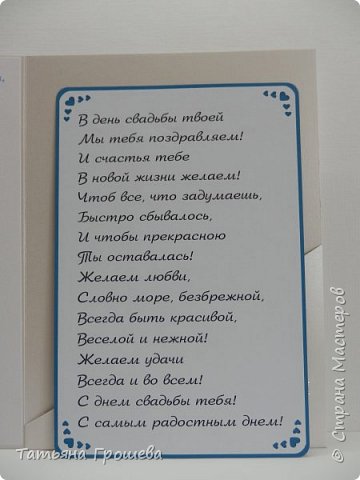 В день свадьбы твоей
Мы тебя поздравляем!
И счастья тебе
В новой жизни желаем!
Чтоб все, что задумаешь,
Быстро сбывалось,
И чтобы прекрасною
Ты оставалась!
Желаем любви,
Словно море, безбрежной,
Всегда быть красивой,
Веселой и нежной!
Желаем удачи
Всегда и во всем!
С днем свадьбы тебя!
С самым радостным днем!
Татьяна Грошева
© Страна Мастеров